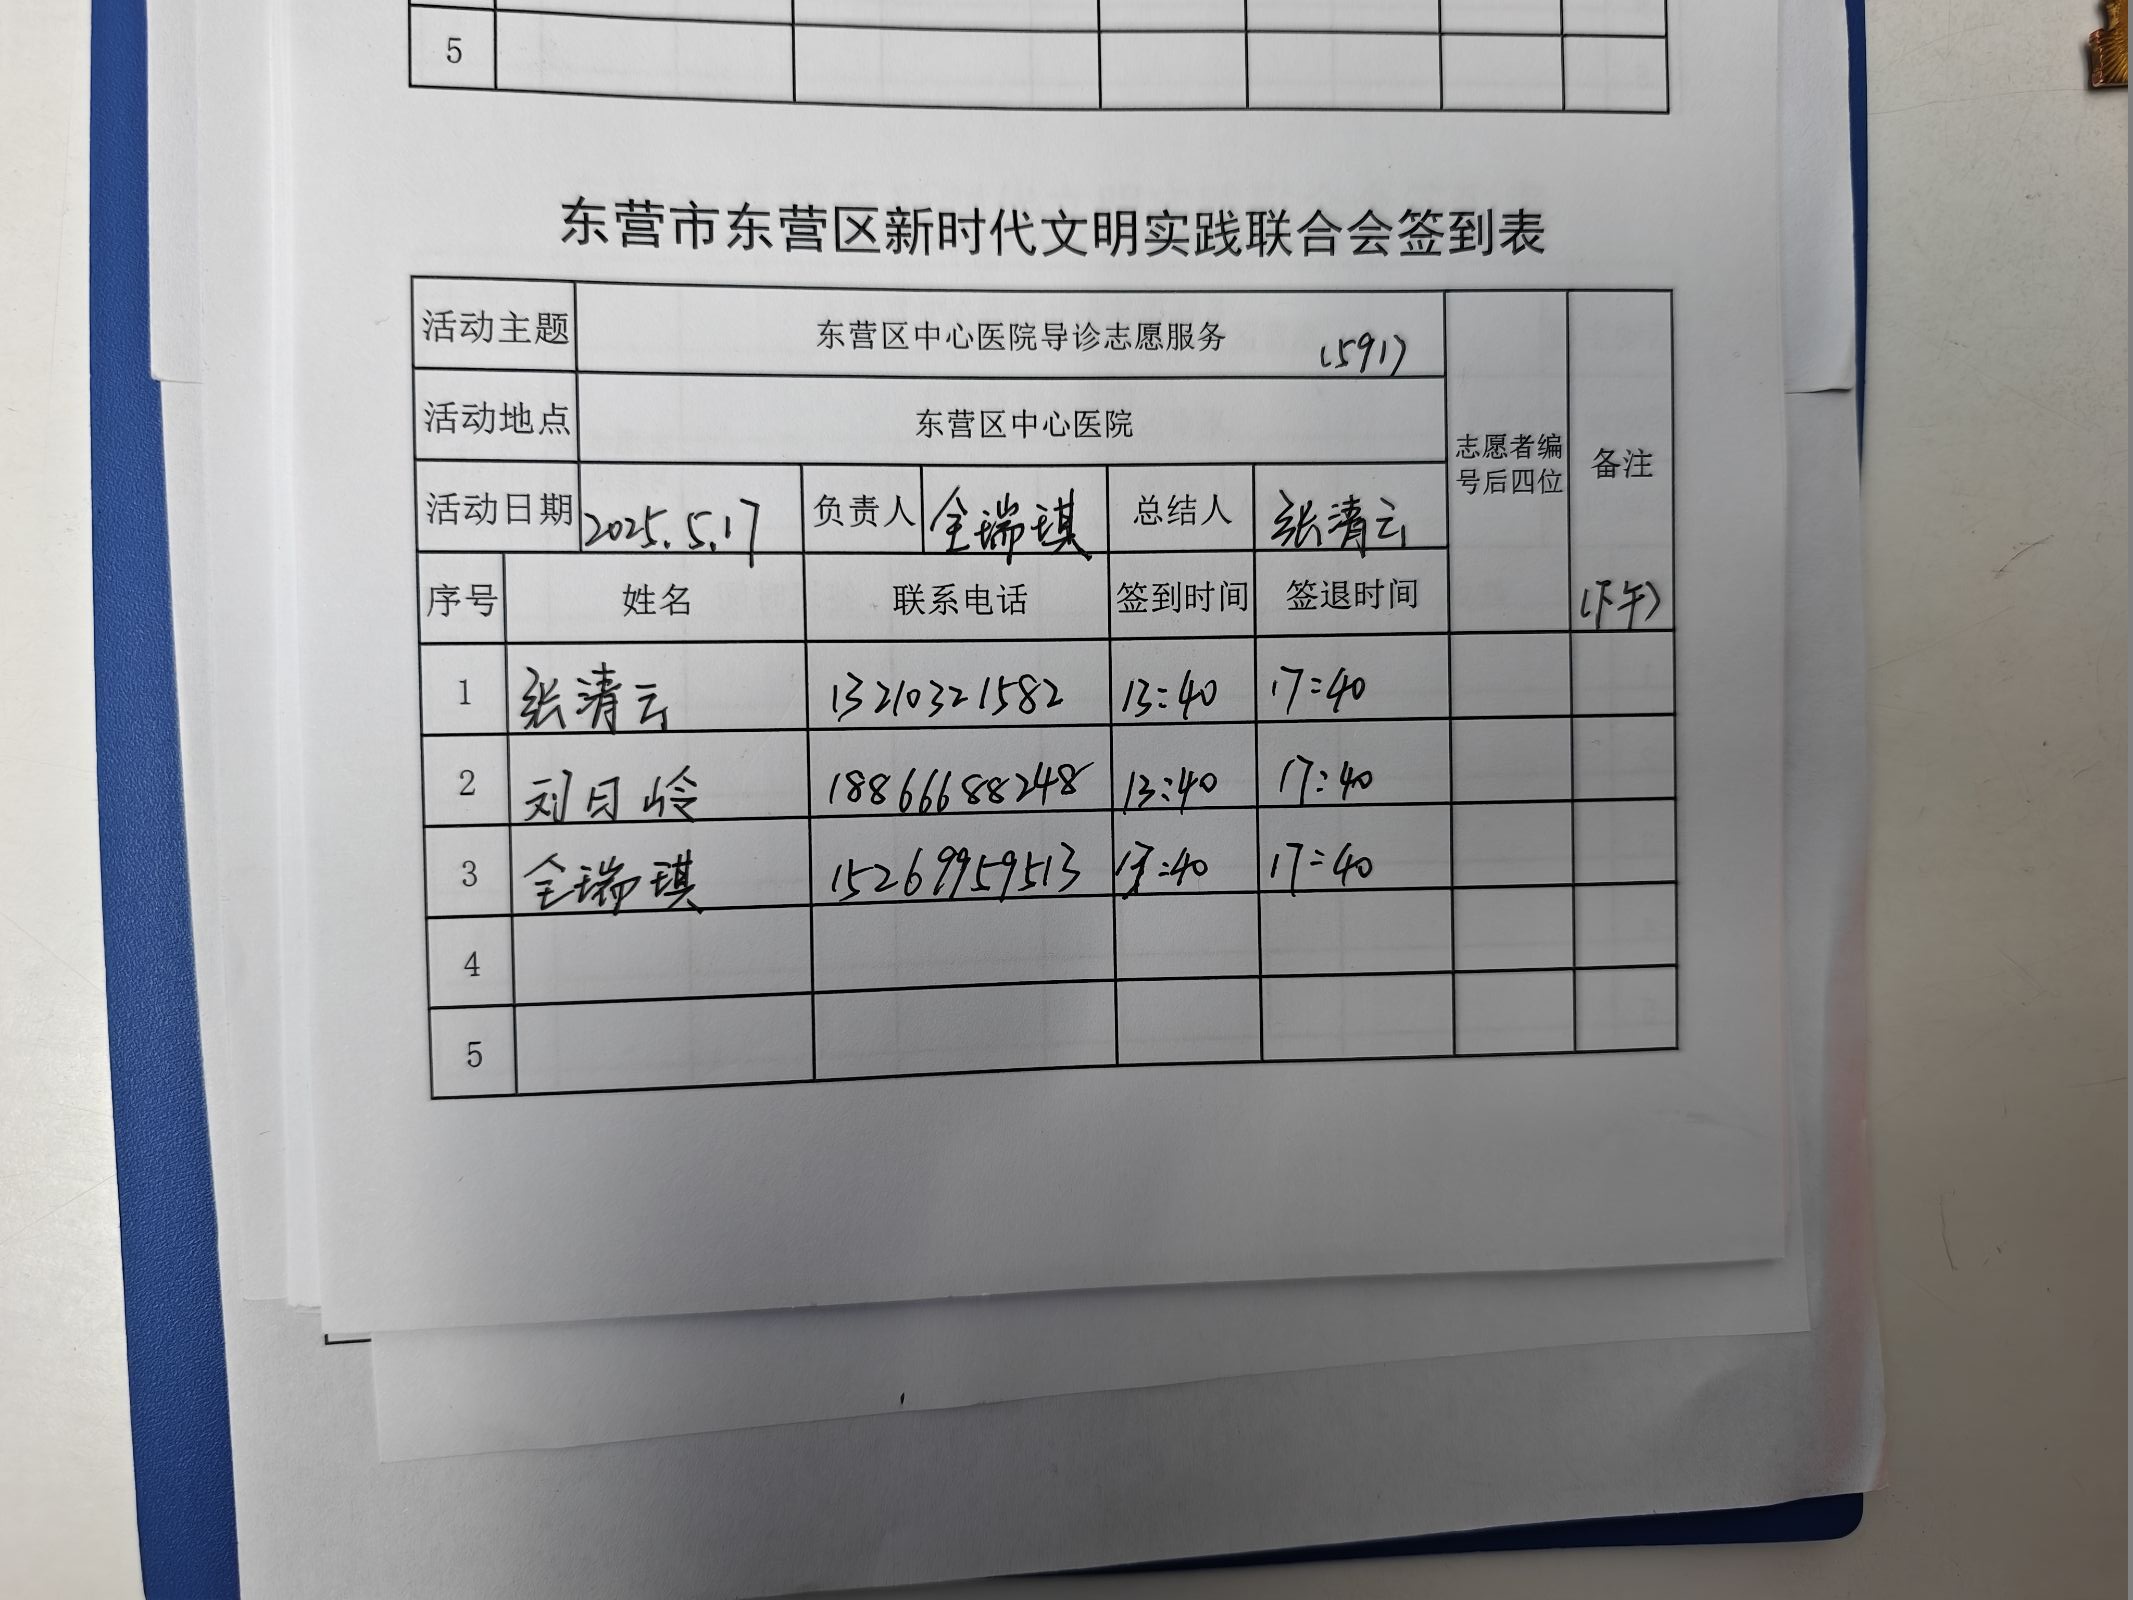 5
东营市东营区新时代文明实践联合会签到表
活动主题 东营区中心医院导诊志愿服务 (591)
活动地点 东营区中心医院
志愿者编号后四位 备注
活动日期 2025.5.17 负责人 全瑞琪 总结人 张清云
序号 姓名 联系电话 签到时间 签退时间 (下午)
1 张清云 13210321582 13:40 17:40
2 刘月岭 18866688248 13:40 17:40
3 全瑞琪 15269959513 13:40 17:40
4
5